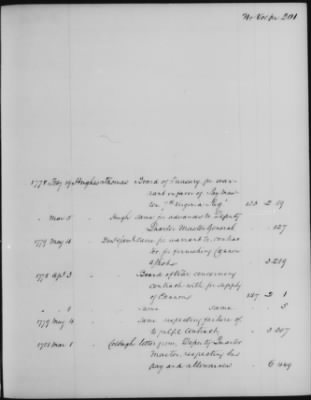 No. Vol. pa. 201
1778 Feby 19 Hughes Thomas Board of Treasury for war-
rant in favor of Paymas-
ter 7th Virginia Regt 153 2 19
" Mar 5 " Hugh same for advances to Deputy
Quarter Master General " " 127
1779 May 14 same for warrant to contrac-
tor for furnishing Cannon
& Shot " 3 219
1778 Apl 3 " Board of War concerning
contract with for supply
of Cannons 147 2 1
" " " " same same " " 3
1779 May 4 " same respecting failure of
to fulfil contract " 3 207
1781 Mar 1 " letter from, Deputy Quarter
Master, respecting his
pay and allowances " 6